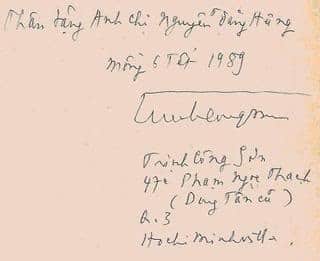 Thân tặng Anh chị Nguyễn Đăng Hưng
mồng 6 Tết 1989
Trịnh Công Sơn
47c Phạm Ngọc Thạch
(Duy Tân cũ)
Q.3
Hochiminhville.